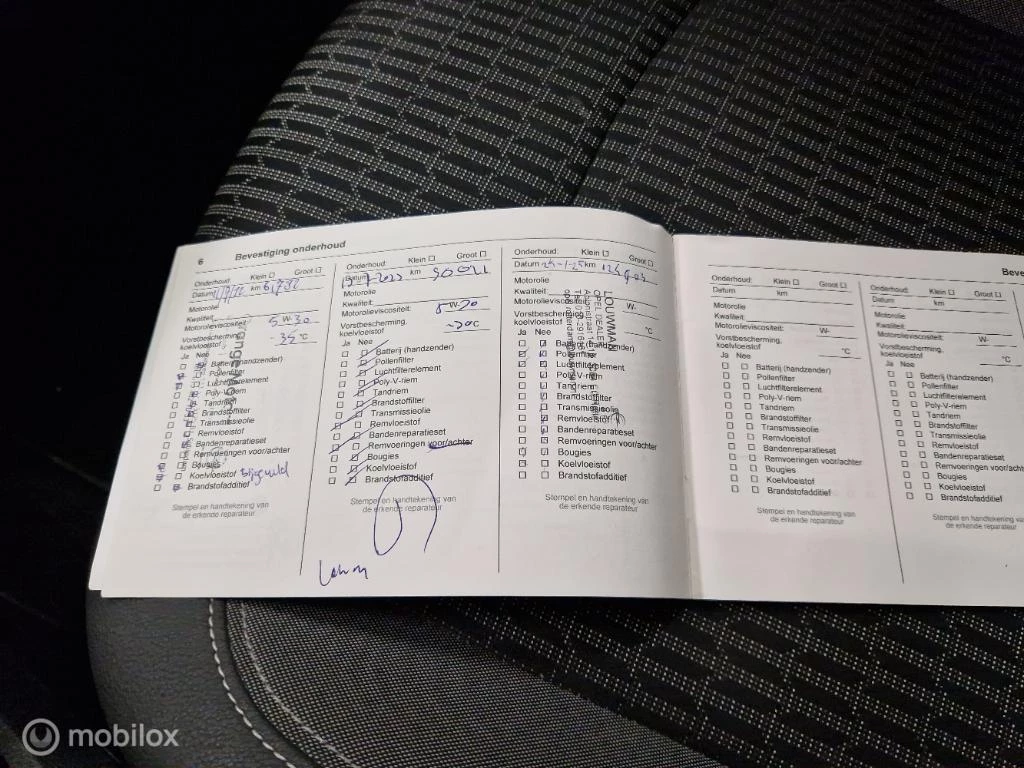 6 Bevestiging onderhoud
Onderhoud: Klein Groot
Datum km
Motorolie
Kwaliteit:
Motorolieviscositeit: 5 W- 30
Vorstbescherming, koelvloeistof - 35 °C
Ja Nee
Batterij (handzender)
Pollenfilter
Luchtfilterelement
Poly-V-riem
Tandriem
Brandstoffilter
Transmissieolie
Remvloeistof
Bandenreparatieset
Remvoeringen voor/achter
Bougies
Koelvloeistof
Brandstofadditief
Stempel en handtekening van
de erkende reparateur
Onderhoud: Klein Groot
Datum 7-2022 km
Motorolie
Kwaliteit:
Motorolieviscositeit: W-
Vorstbescherming, koelvloeistof °C
Ja Nee
Batterij (handzender)
Pollenfilter
Luchtfilterelement
Poly-V-riem
Tandriem
Brandstoffilter
Transmissieolie
Remvloeistof
Bandenreparatieset
Remvoeringen voor/achter
Bougies
Koelvloeistof
Brandstofadditief
Stempel en handtekening van
de erkende reparateur
Onderhoud: Klein Groot
Datum km
Motorolie
Kwaliteit:
Motorolieviscositeit: W-
Vorstbescherming, koelvloeistof °C
Ja Nee
Batterij (handzender)
Pollenfilter
Luchtfilterelement
Poly-V-riem
Tandriem
Brandstoffilter
Transmissieolie
Remvloeistof
Bandenreparatieset
Remvoeringen voor/achter
Bougies
Koelvloeistof
Brandstofadditief
Stempel en handtekening van
de erkende reparateur
LOUWMAN
OPEL DEALER
Onderhoud: Klein Groot
Datum km
Motorolie
Kwaliteit:
Motorolieviscositeit: W-
Vorstbescherming, koelvloeistof °C
Ja Nee
Batterij (handzender)
Pollenfilter
Luchtfilterelement
Poly-V-riem
Tandriem
Brandstoffilter
Transmissieolie
Remvloeistof
Bandenreparatieset
Remvoeringen voor/achter
Bougies
Koelvloeistof
Brandstofadditief
Stempel en handtekening van
de erkende reparateur
Beve
Onderhoud: Klein
Datum km
Motorolie
Kwaliteit:
Motorolieviscositeit: W-
Vorstbescherming, koelvloeistof
Ja Nee
Batterij (handzender)
Pollenfilter
Luchtfilterelement
Poly-V-riem
Tandriem
Brandstoffilter
Transmissieolie
Remvloeistof
Bandenreparatieset
Remvoeringen voor/achter
Bougies
Koelvloeistof
Brandstofadditief
Stempel en handtekening
de erkende reparateur
mobilox